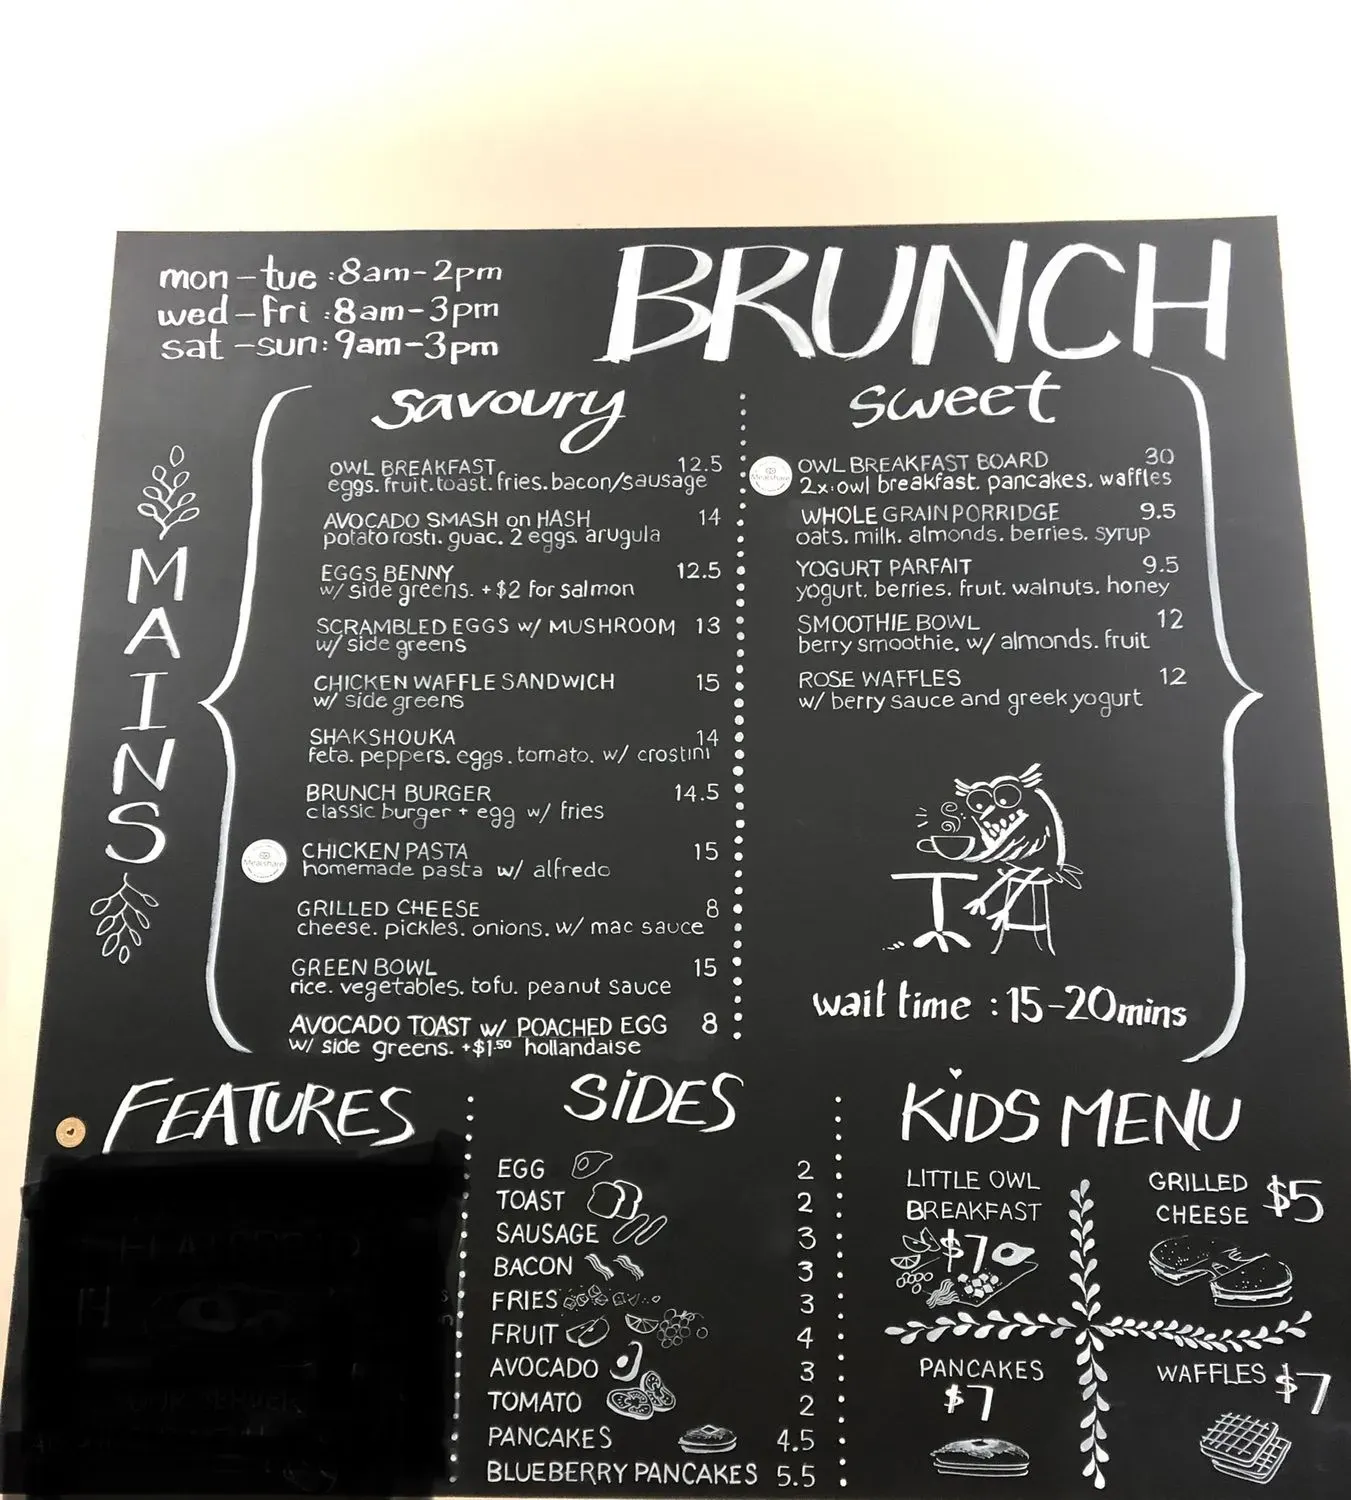 mon-tue:8am-2pm
wed-fri:8am-3pm
sat-sun:9am-3pm
BRUNCH
MAINS
savoury
OWL BREAKFAST 12.5
eggs. fruit. toast. fries. bacon/sausage
AVOCADO SMASH on HASH 14
potato rosti. guac. 2 eggs. arugula
EGGS BENNY 12.5
w/ side greens. +$2 for salmon
SCRAMBLED EGGS w/ MUSHROOM 13
w/ side greens
CHICKEN WAFFLE SANDWICH 15
w/ side greens
SHAKSHOUKA 14
feta. peppers. eggs. tomato. w/ crostini
BRUNCH BURGER 14.5
classic burger + egg w/ fries
Mealshare
CHICKEN PASTA 15
homemade pasta w/ alfredo
GRILLED CHEESE 8
cheese. pickles. onions. w/ mac sauce
GREEN BOWL 15
rice. vegetables. tofu. peanut sauce
AVOCADO TOAST w/ POACHED EGG 8
w/ side greens. +$1.50 hollandaise
sweet
Mealshare
OWL BREAKFAST BOARD 30
2x: owl breakfast. pancakes. waffles
WHOLE GRAIN PORRIDGE 9.5
oats. milk. almonds. berries. syrup
YOGURT PARFAIT 9.5
yogurt. berries. fruit. walnuts. honey
SMOOTHIE BOWL 12
berry smoothie. w/ almonds. fruit
ROSE WAFFLES 12
w/ berry sauce and greek yogurt
wait time : 15-20mins
FEATURES
SiDES
EGG 2
TOAST 2
SAUSAGE 3
BACON 3
FRIES 3
FRUIT 4
AVOCADO 3
TOMATO 2
PANCAKES 4.5
BLUEBERRY PANCAKES 5.5
KiDS MENU
LITTLE OWL
BREAKFAST
$7
GRILLED
CHEESE
$5
PANCAKES
$7
WAFFLES
$7